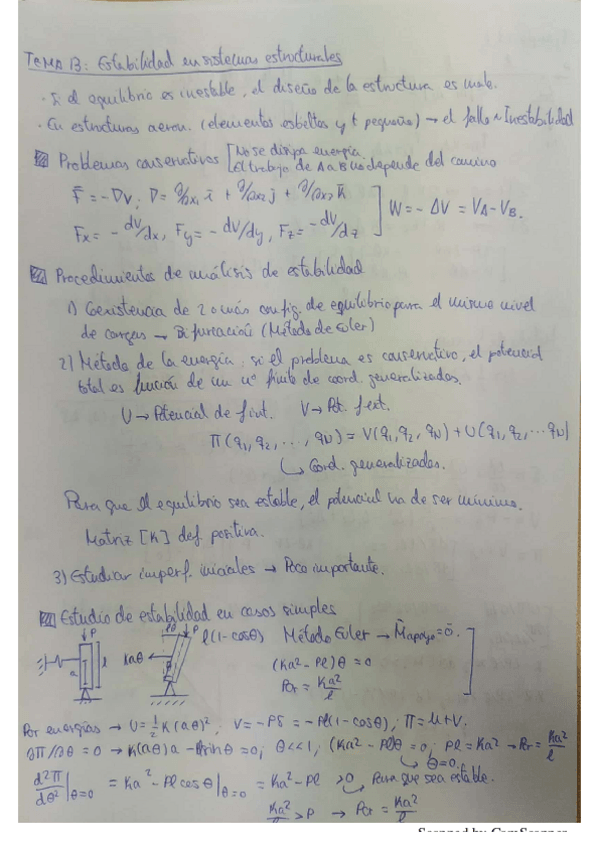 TEMA 13: Estabilidad en sistemas estructurales
· Si el equilibrio es inestable, el diseño de la estructura es malo.
· En estructuras aeron. (elementos esbeltos y t pequeño) → el fallo ~ Inestabilidad
Problemas conservativos [No se disipa energía
El trabajo de A a B no depende del camino
F̄ = -∇V; ∇ = ∂/∂x₁ ī + ∂/∂x₂ j̄ + ∂/∂x₃ k̄
Fx = -dV/dx, Fy = -dV/dy, Fz = -dV/dz ] W = -ΔV = VA - VB.
Procedimientos de análisis de estabilidad
1) Coexistencia de 2 o más config. de equilibrio para el mismo nivel
de cargas → Bifurcación (Método de Euler)
2) Método de la energía: si el problema es conservativo, el potencial
total es función de un nº finito de coord. generalizadas.
U → Potencial de f int. V → Pot. f ext.
Π(q₁, q₂, ..., qN) = V(q₁, q₂, qN) + U(q₁, q₂, ... qN)
↳ Coord. generalizadas.
Para que el equilibrio sea estable, el potencial ha de ser mínimo.
Matriz [K] def. positiva.
3) Estudiar imperf. iniciales → Poco importante.
Estudio de estabilidad en casos simples
P P l(1-cosθ) Método Euler → M̄apoyo = 0̄.
a l kaθ ←
(Ka² - Pl)θ = 0
Pcr = Ka²/l
Por energías → U = ½K(aθ)², V = -Pδ = -Pl(1-cosθ), Π = U+V.
∂Π/∂θ = 0 → K(aθ)a - Plsinθ = 0; θ<<1; (Ka² - Pl)θ = 0; Pl = Ka² → Pcr = Ka²/l
↳ θ=0.
d²Π/dθ²|θ=0 = Ka² - Pl cosθ|θ=0 = Ka² - Pl >0 para que sea estable.
Ka²/l > P → Pcr = Ka²/l